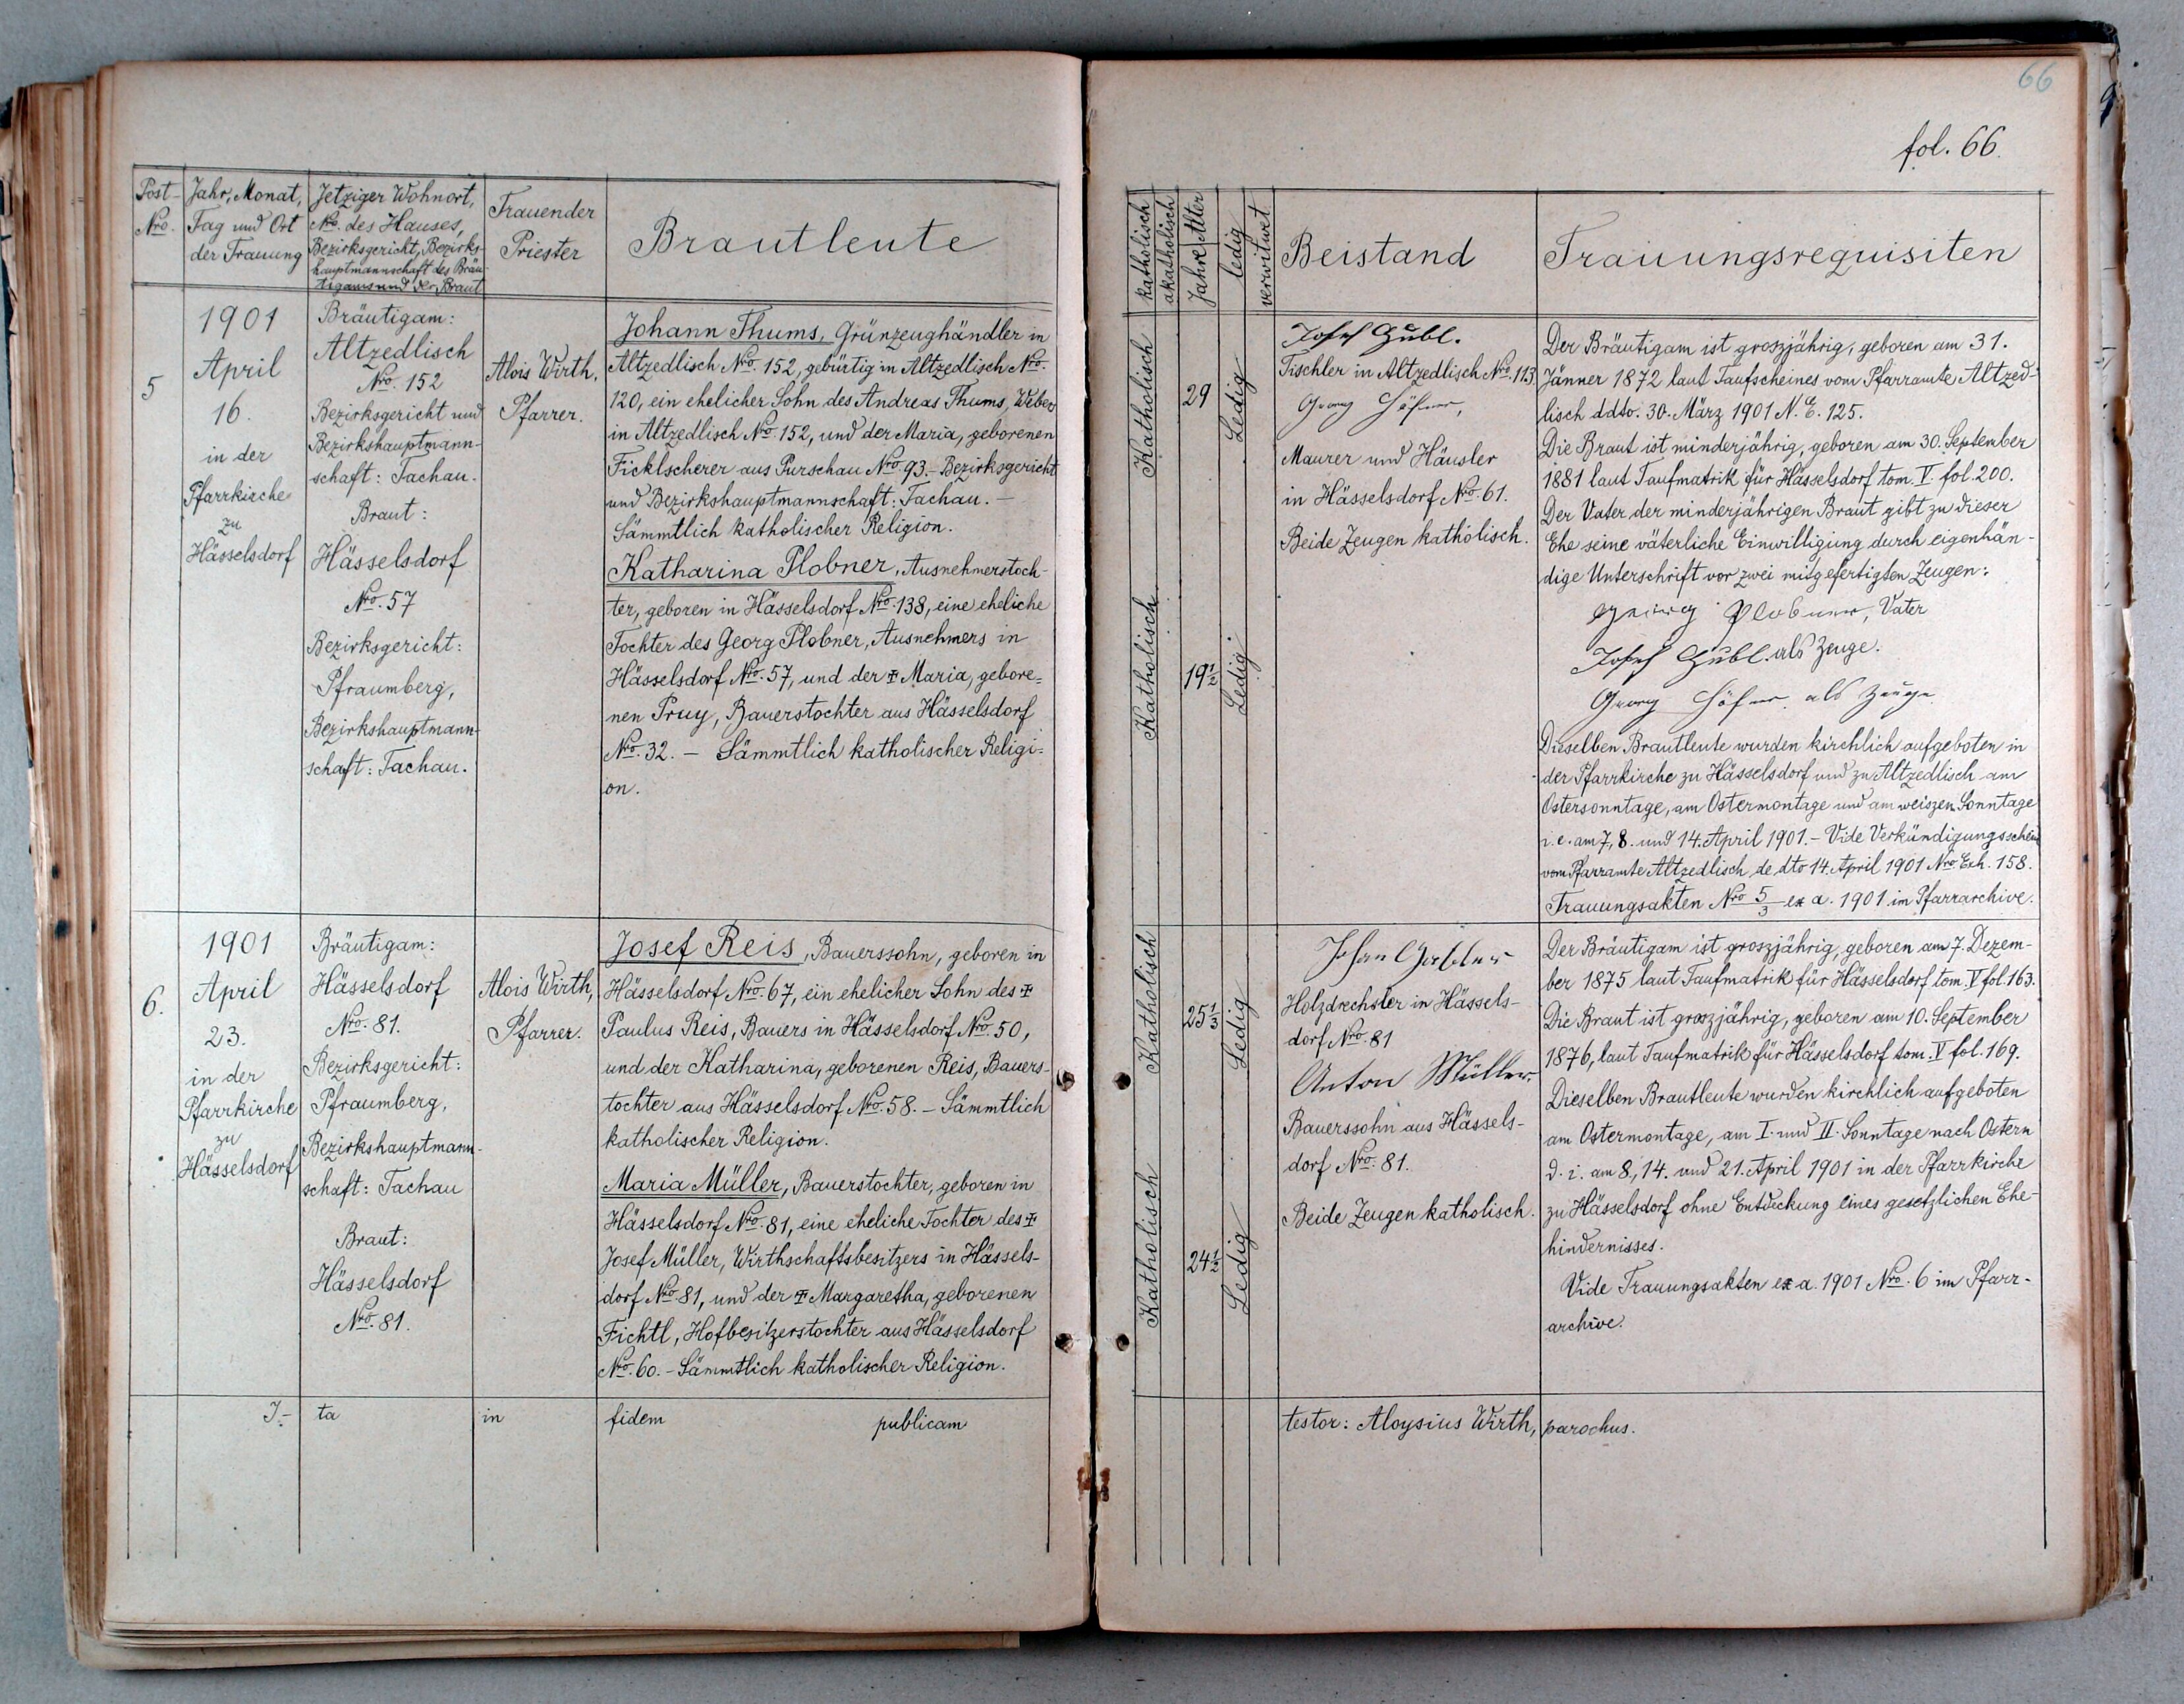 66
fol. 66.
Post-
Nro.
Jahr, Monat,
Tag und Ort
der Trauung
Jetziger Wohnort,
Nro. des Hauses,
Bezirksgericht, Bezirks-
hauptmannschaft des Bräu-
tigams und der Braut
Trauender
Priester
Brautleute
katholisch
akatholisch
Jahre Alter
ledig
verwitwet
Beistand
Trauungsrequisiten
5
1901
April
16.
in der
Pfarrkirche
zu
Hässelsdorf
Bräutigam:
Altzedlisch
Nro. 152
Bezirksgericht und
Bezirkshauptmann-
schaft: Tachau.
Braut:
Hässelsdorf
Nro. 57
Bezirksgericht:
Pfraumberg,
Bezirkshauptmann-
schaft: Tachau.
Alois Wirth,
Pfarrer.
Johann Thums, Grünzeughändler in
Altzedlisch Nro. 152, gebürtig in Altzedlisch Nro.
120, ein ehelicher Sohn des Andreas Thums, Weber
in Altzedlisch Nro. 152, und der Maria, geborenen
Ficklscherer aus Purschau Nro. 93. - Bezirksgericht
und Bezirkshauptmannschaft: Tachau. -
Sämmtlich katholischer Religion.
Katharina Plobner, Ausnehmerstoch-
ter, geboren in Hässelsdorf Nro. 138, eine eheliche
Tochter des Georg Plobner, Ausnehmers in
Hässelsdorf Nro. 57, und der ‡ Maria, gebore=
nen Pruy, Bauerstochter aus Hässelsdorf
Nro. 32. - Sämmtlich katholischer Religi=
on.
Katholisch
29
Ledig
Katholisch
19 1/2
Ledig.
Josef Gübl.
Tischler in Altzedlisch Nro. 113.
Georg Höfner,
Maurer und Häusler
in Hässelsdorf Nro. 61.
Beide Zeugen katholisch.
Der Bräutigam ist groszjährig, geboren am 31.
Jänner 1872 laut Taufscheines vom Pfarramte Altzed-
lisch ddto. 30. März 1901 N. E. 125.
Die Braut ist minderjährig, geboren am 30. September
1881 laut Taufmatrik für Hässelsdorf tom. V. fol. 200.
Der Vater der minderjährigen Braut gibt zu dieser
Ehe seine väterliche Einwilligung durch eigenhän-
dige Unterschrift vor zwei mitgefertigten Zeugen:
Georg Plobner, Vater
Josef Gübl. als Zeuge.
Georg Höfner als Zeuge
Dieselben Brautleute wurden kirchlich aufgeboten in
der Pfarrkirche zu Hässelsdorf und zu Altzedlisch am
Ostersonntage, am Ostermontage und am weiszen Sonntage
i. e. am 7, 8. und 14. April 1901. - Vide Verkündigungsschein
vom Pfarramte Altzedlisch de dto 14. April 1901 Nro. Exh. 158.
Trauungsakten Nro 5/3 ex a. 1901 im Pfarrarchive.
6.
1901
April
23.
in der
Pfarrkirche
zu
Hässelsdorf
Bräutigam:
Hässelsdorf
Nro. 81.
Bezirksgericht:
Pfraumberg,
Bezirkshauptmann-
schaft: Tachau
Braut:
Hässelsdorf
Nro. 81.
Alois Wirth,
Pfarrer.
Josef Reis, Bauerssohn, geboren in
Hässelsdorf Nro. 67, ein ehelicher Sohn des ‡
Paulus Reis, Bauers in Hässelsdorf Nro. 50,
und der Katharina, geborenen Reis, Bauers-
tochter aus Hässelsdorf Nro. 58. - Sämmtlich
katholischer Religion.
Maria Müller, Bauerstochter, geboren in
Hässelsdorf Nro. 81, eine eheliche Tochter des ‡
Josef Müller, Wirthschaftsbesitzers in Hässels-
dorf Nro 81, und der ‡ Margaretha, geborenen
Fichtl, Hofbesitzerstochter aus Hässelsdorf
Nro. 60. - Sämmtlich katholischer Religion.
Katholisch
25 1/3
Ledig
Katholisch
24 1/2
Ledig
Holzdrechsler in Hässels-
dorf Nro. 81
Anton Müller.
Bauerssohn aus Hässels-
dorf Nro. 81.
Beide Zeugen katholisch.
Der Bräutigam ist groszjährig, geboren am 7. Dezem-
ber 1875 laut Taufmatrik für Hässelsdorf tom. V fol. 163.
Die Braut ist groszjährig, geboren am 10. September
1876, laut Taufmatrik für Hässelsdorf tom. V fol. 169.
Dieselben Brautleute wurden kirchlich aufgeboten
am Ostermontage, am I. und II. Sonntage nach Ostern
d. i. am 8., 14. und 21. April 1901 in der Pfarrkirche
zu Hässelsdorf ohne Entdeckung eines gesetzlichen Ehe-
hindernisses.
Vide Trauungsakten ex a. 1901 Nro. 6 im Pfarr-
archive.
I- ta in fidem publicam testor: Aloysius Wirth, parochus.